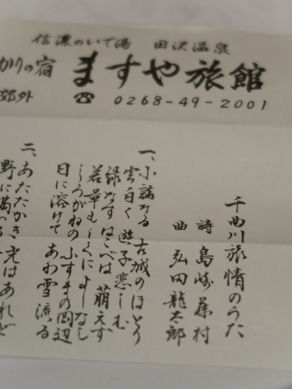 信濃のいで湯 田沢温泉
かりの宿 ますや旅館
郊外 ☎ 0268-49-2001
千曲川旅情のうた
詩 島崎藤村
曲 弘田龍太郎
一、小諸なる 古城のほとり
雲白く 遊子悲しむ
緑なす はこべは 萌えず
若草も しくによしなし
しろがねの ふすまの岡辺
日に溶けて あわ雪流る
二、あたたかき 光はあれど
野に満つる